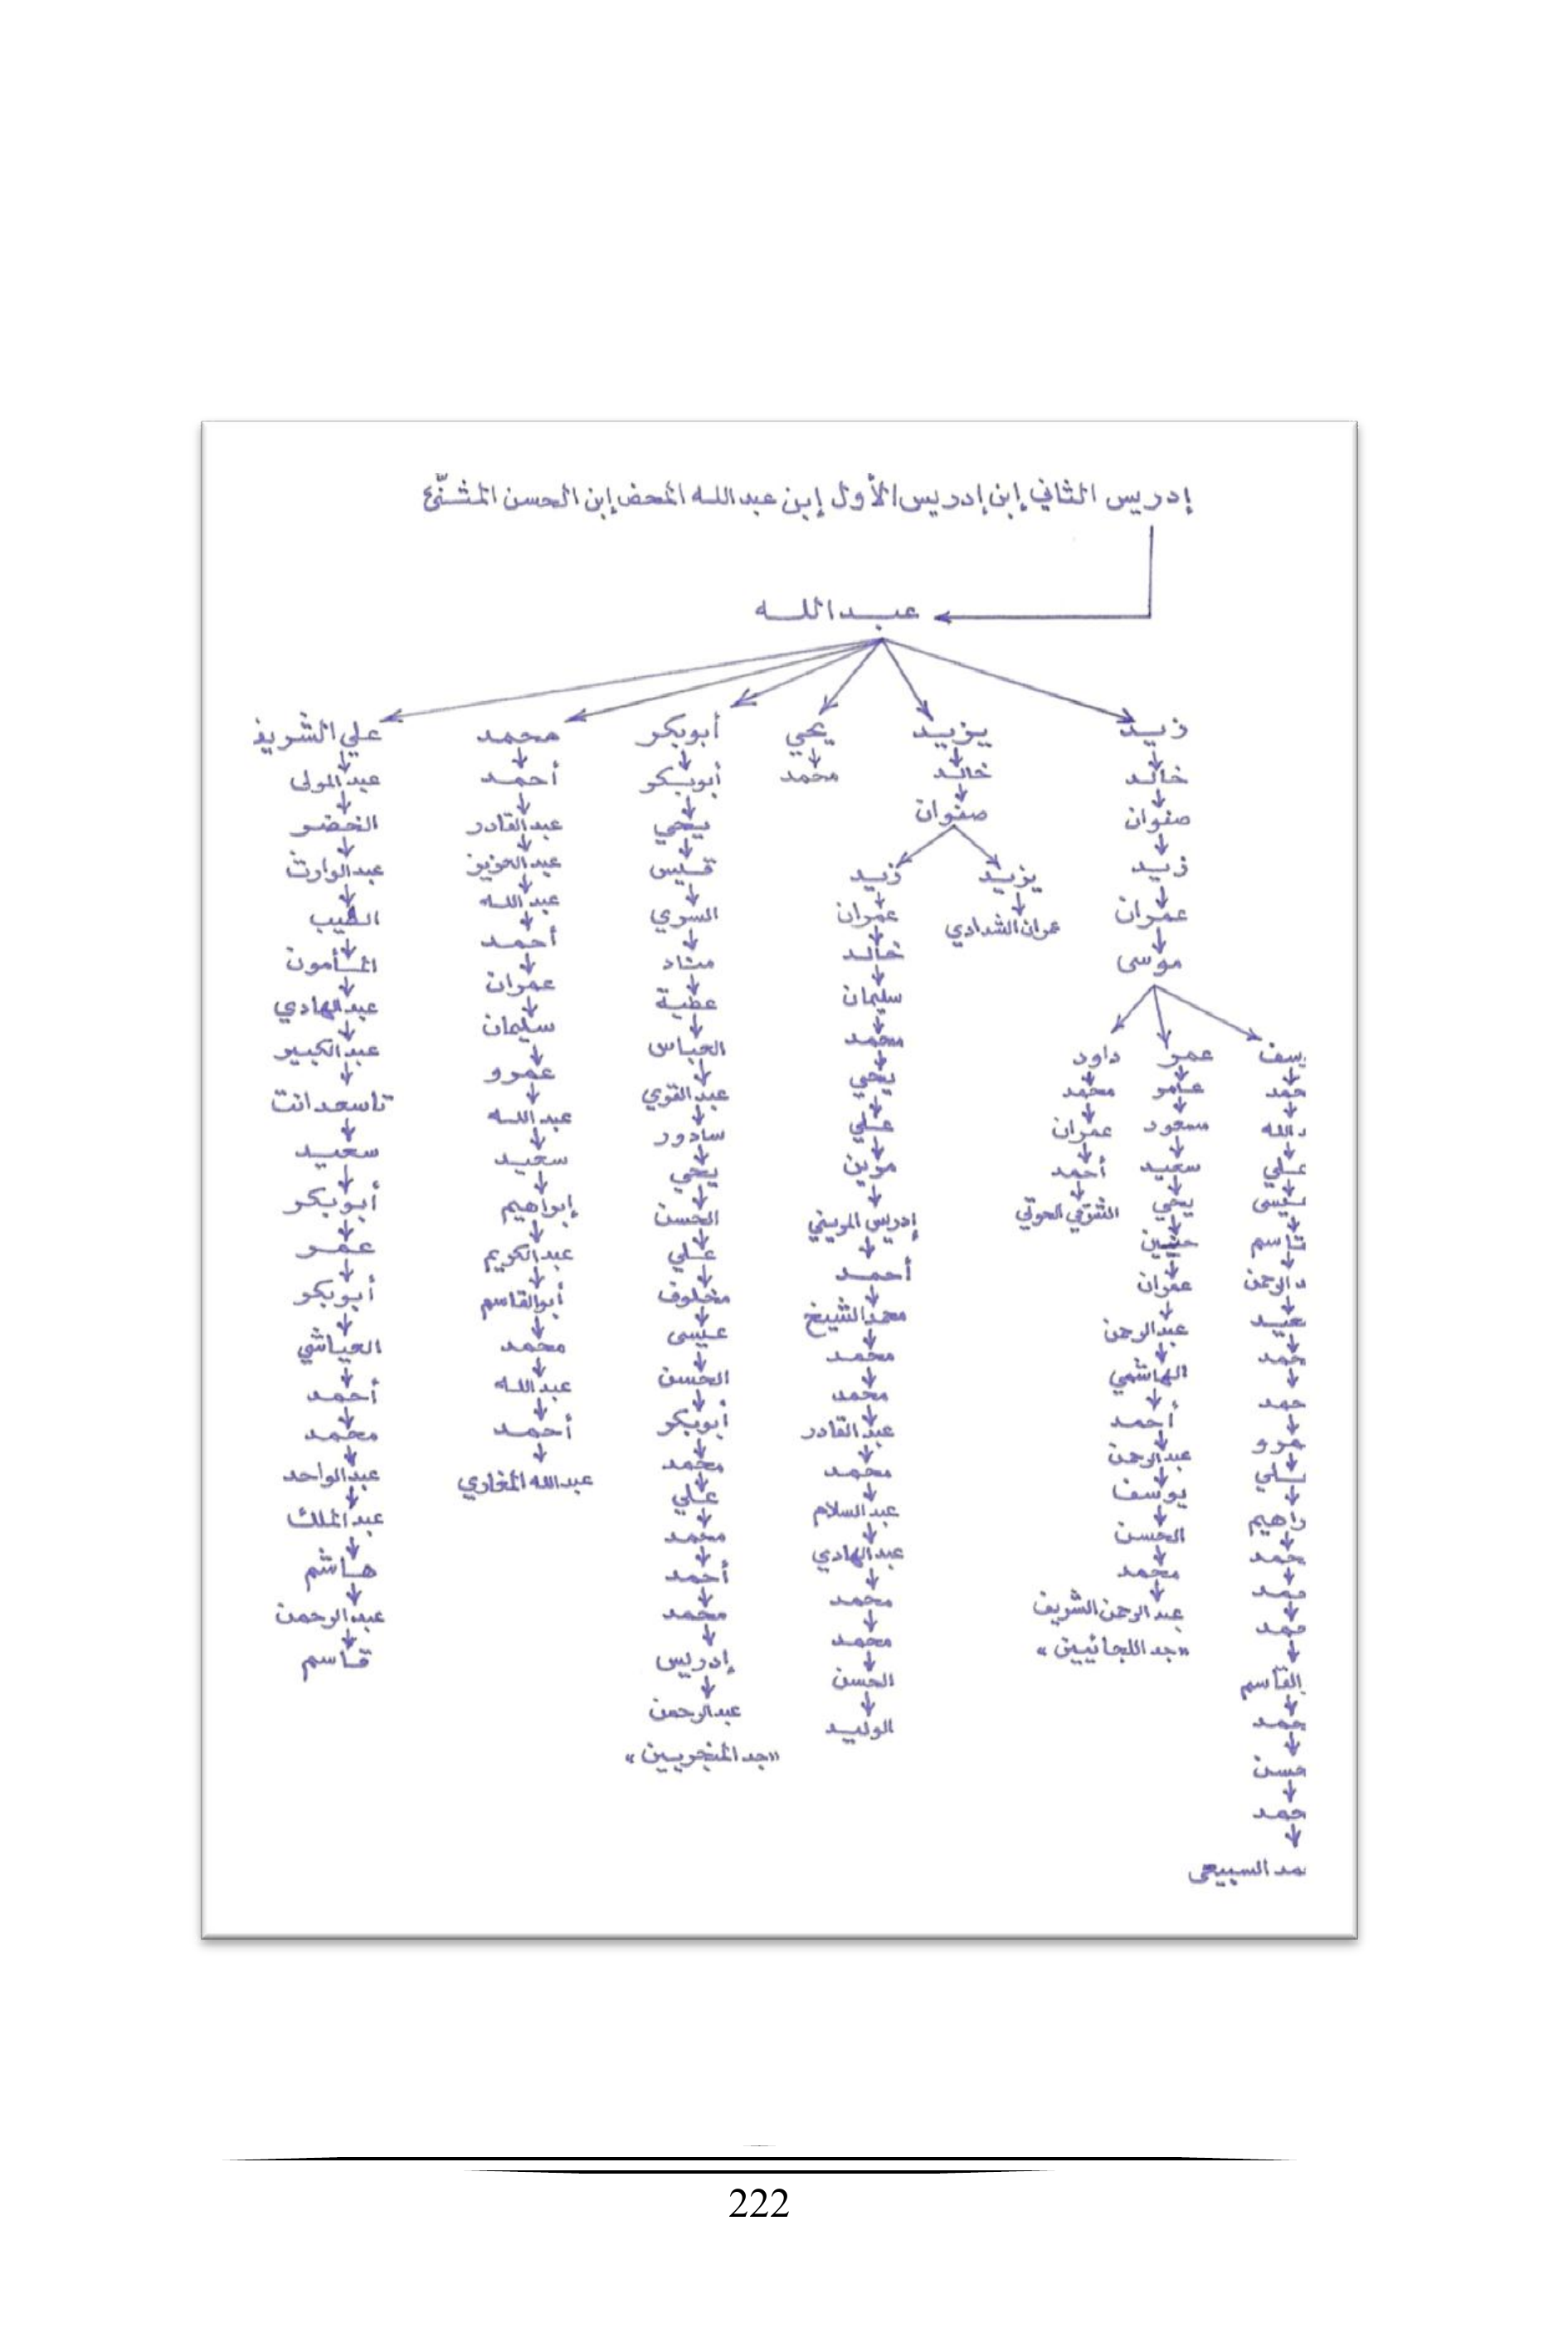 إدريس الثاني إبن إدريس الأول إبن عبدالله المحض إبن الحسن المثنّى
عبدالله
زيد
خالد
صفوان
زيد
عمران
موسى
يسف
حمد
دالله
علي
عيسى
قاسم
دالرحمن
عيد
حمد
حمد
مرو
علي
راهيم
حمد
حمد
حمد
القاسم
حمد
حسن
حمد
مد السبيعي
عمر
عامر
مسعود
سعيد
يحي
حنين
عمران
عبدالرحمن
الهاشمي
أحمد
عبدالرحمن
يوسف
الحسن
محمد
عبدالرحمن الشريف
«جد اللجائيين»
داود
محمد
عمران
أحمد
الشرقي الحوتي
يزيد
خالد
صفوان
يزيد
عمران الشدادي
زيد
عمران
خالد
سليمان
محمد
يحي
علي
مرين
إدريس المريني
أحمد
محمد الشيخ
محمد
محمد
عبدالقادر
محمد
عبدالسلام
عبدالهادي
محمد
محمد
الحسن
الوليد
يحي
محمد
أبوبكر
أبوبكر
يحي
قليس
السري
مشاد
عطية
العباس
عبدالقوي
سادور
يحي
الحسن
علي
مخلوف
عيسى
الحسن
أبوبكر
محمد
علي
محمد
أحمد
محمد
إدريس
عبدالرحمن
«جد المنجريين»
محمد
أحمد
عبدالقادر
عبدالعزيز
عبدالله
أحمد
عمران
سليمان
عمرو
عبدالله
سعيد
إبراهيم
عبدالكريم
أبوالقاسم
محمد
عبدالله
أحمد
عبدالله المغاري
علي الشريف
عبدالمولى
الخضر
عبدالوارث
الطيب
المأمون
عبدالهادي
عبدالكبير
تاسعدانت
سعيد
أبوبكر
عمر
أبوبكر
العياشي
أحمد
محمد
عبدالواحد
عبدالملك
هاشم
عبدالرحمن
قاسم
222